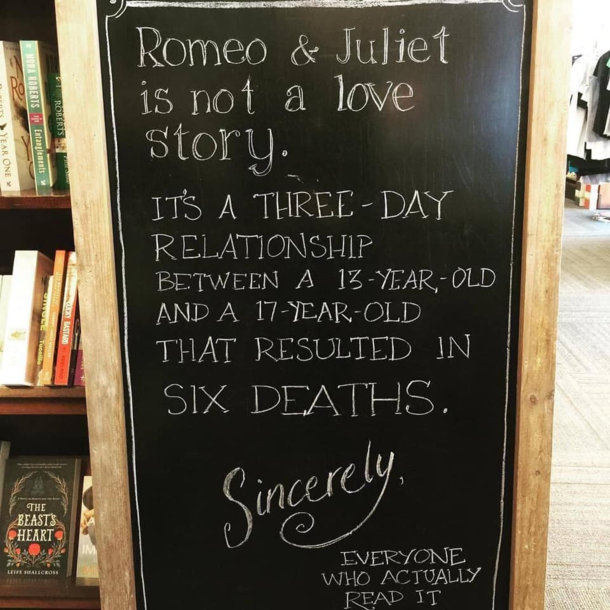 Romeo & Juliet
is not a love
story.
IT'S A THREE-DAY
RELATIONSHIP
BETWEEN A 13-YEAR-OLD
AND A 17-YEAR-OLD
THAT RESULTED IN
SIX DEATHS.
Sincerely,
EVERYONE
WHO ACTUALLY
READ IT
NORA ROBERTS
YEAR ONE
ROBERTS
THE
BEAST'S
HEART
LEIFE SHALLCROSS